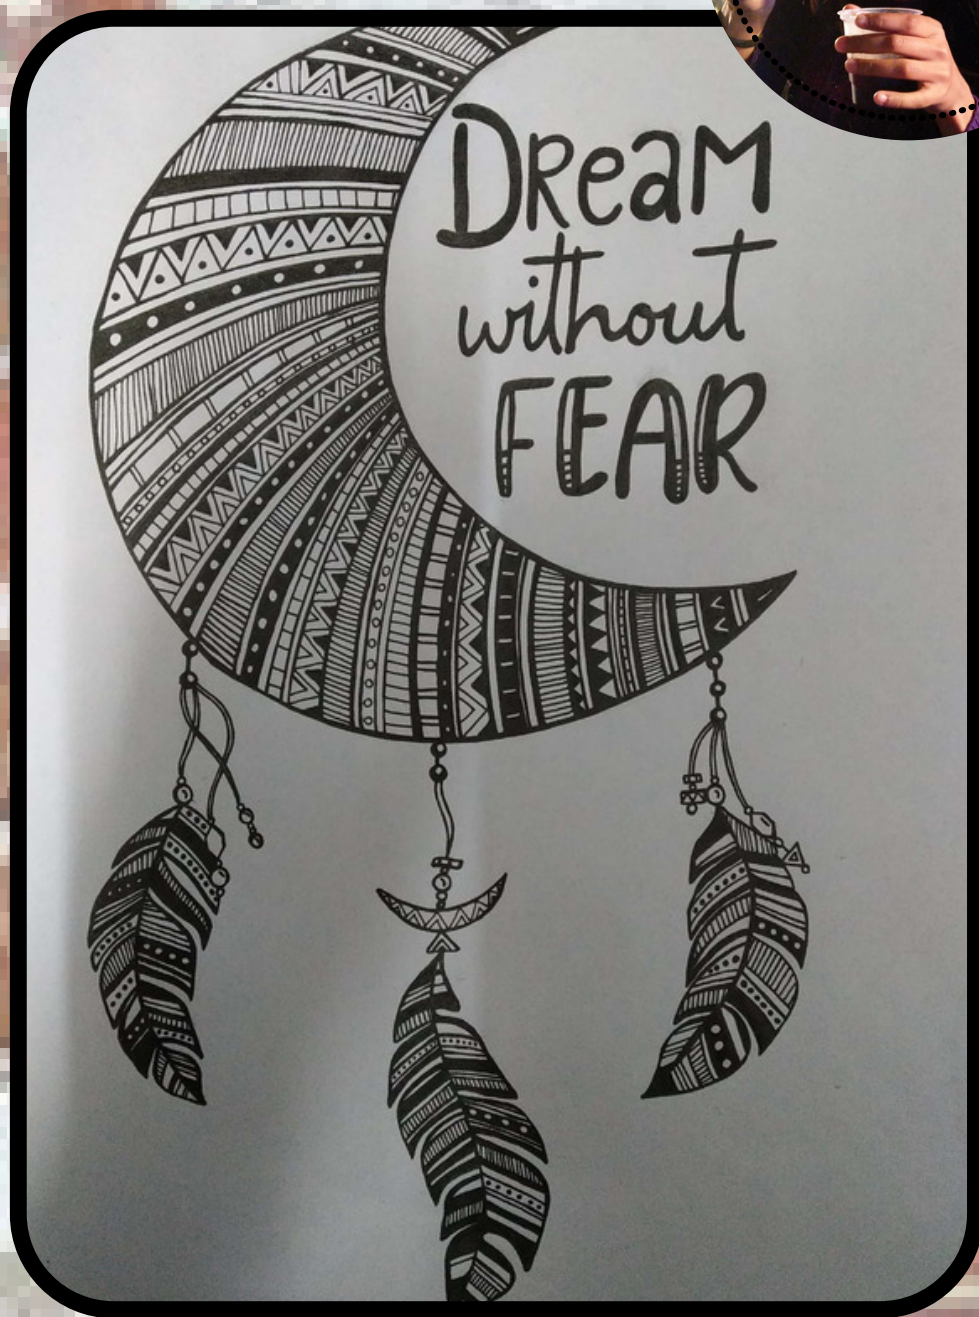 DReaM
without
FEAR